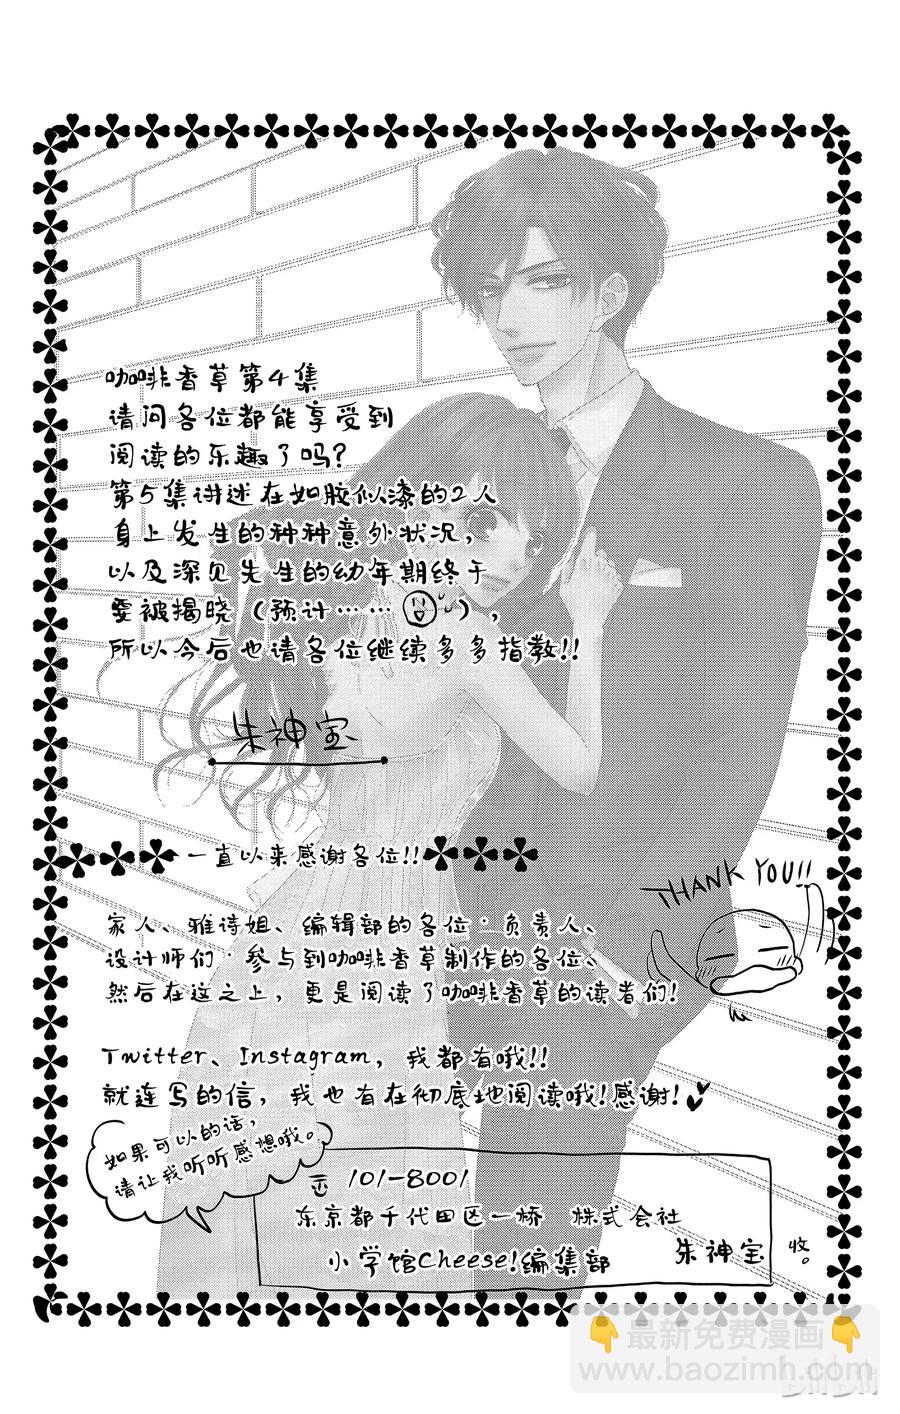 咖啡香草第4集
请问各位都能享受到
阅读的乐趣了吗?
第5集讲述在如胶似漆的2人
身上发生的种种意外状况，
以及深见先生的幼年期终于
要被揭晓（预计……），
所以今后也请各位继续多多指教!!
朱神宝
一直以来感谢各位!!
家人、雅诗姐、编辑部的各位·负责人、
设计师们·参与到咖啡香草制作的各位、
然后在这之上，更是阅读了咖啡香草的读者们!
THANK YOU!!
Twitter、Instagram，我都有哦!!
就连写的信，我也有在彻底地阅读哦!感谢!
如果可以的话，
请让我听听感想哦。
〒101-8001
东京都千代田区一桥 株式会社
小学馆Cheese!编集部 朱神宝 收。
最新免费漫画
www.baozimh.com